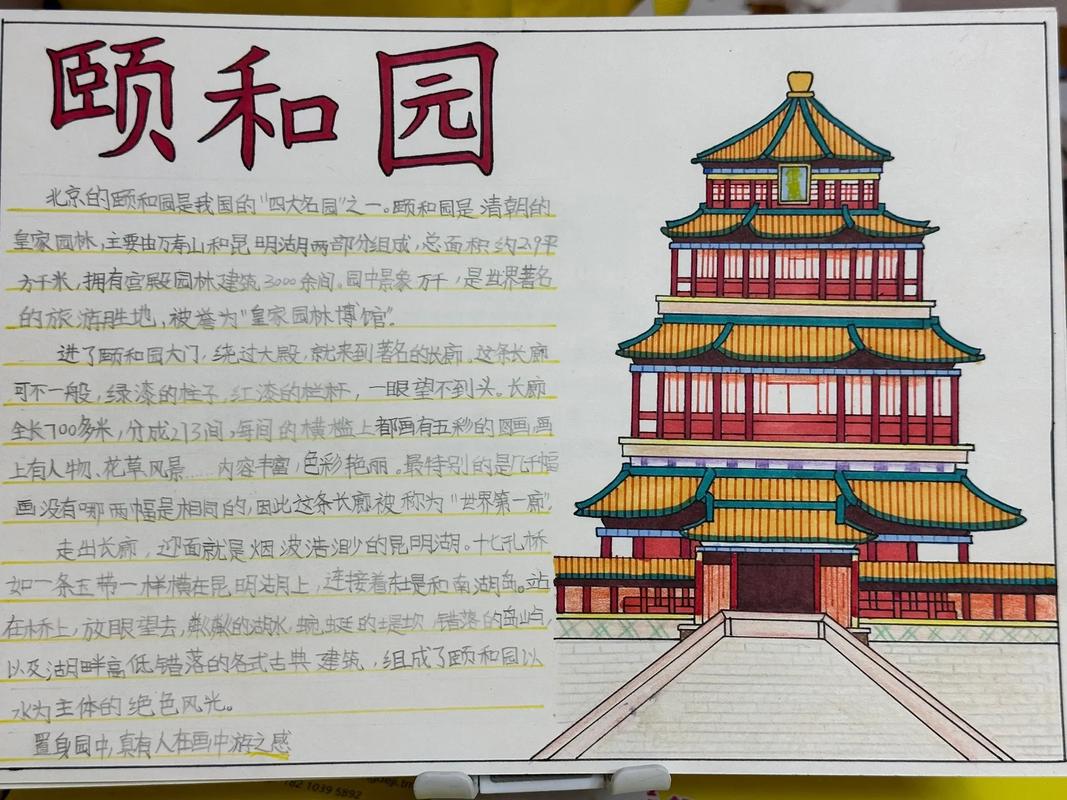 颐和园
北京的颐和园是我国的"四大名园"之一。颐和园是清朝的
皇家园林,主要由万寿山和昆明湖两部分组成,总面积约2.9平
方千米,拥有宫殿园林建筑3000余间。园中景象万千,是世界著名
的旅游胜地,被誉为"皇家园林博馆"。
进了颐和园大门,绕过大殿,就来到著名的长廊。这条长廊
可不一般,绿漆的柱子,红漆的栏杆,一眼望不到头。长廊
全长700多米,分成213间,每间的横槛上都画有五彩的图画,画
上有人物、花草风景……内容丰富,色彩艳丽。最特别的是几千幅
画没有哪两幅是相同的,因此这条长廊被称为"世界第一廊"。
走出长廊,迎面就是烟波浩渺的昆明湖。十七孔桥
如一条玉带一样横在昆明湖上,连接着东堤和南湖岛。站
在桥上,放眼望去,粼粼的湖水,蜿蜒的堤坎,错落的岛屿,
以及湖畔高低错落的各式古典建筑,组成了颐和园以
水为主体的绝色风光。
置身园中,真有人在画中游之感
182 1039 5892